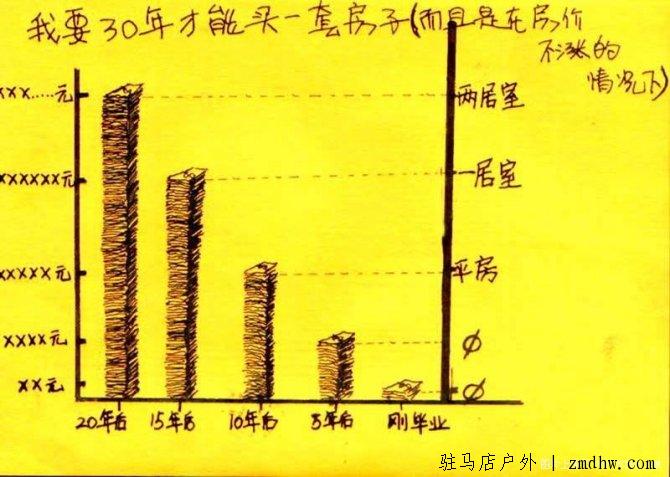 我要30年才能买一套房子(而且是在房价
不涨的
情况下)
xxx.....元
两居室
xxxxxx元
一居室
xxxxx元
平房
xxxx元
∅
xx元
∅
20年后 15年后 10年后 5年后 刚毕业
驻马店户外 | zmdhw.com